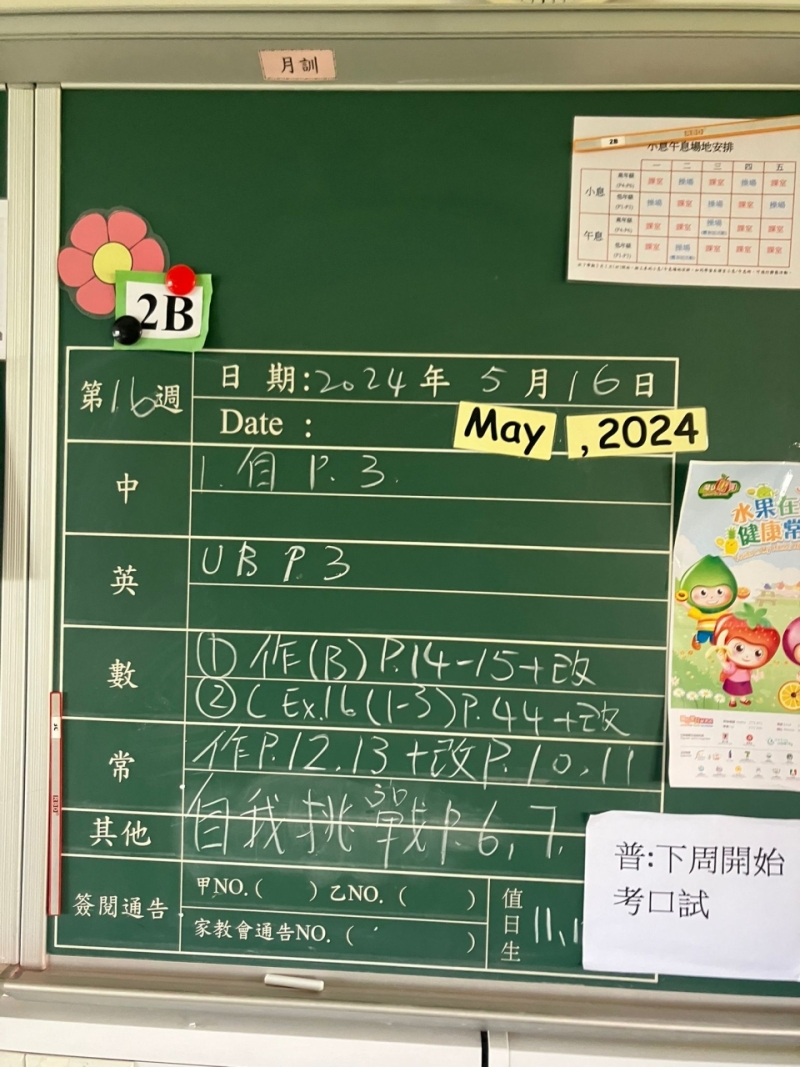 月訓
2B
小息午息場地安排
一 二 三 四 五
小息
課室 操場 課室 操場 課室
操場 課室 操場 課室 操場
午息
課室 課室 操場 課室 課室
課室 操場 課室 課室 課室
2B
第16週
日 期:2024年 5月16日
Date :
May ,2024
中
1. 自 P. 3.
英
UB P.3
數
① 作(B) P.14-15+改
② C Ex.16(1-3)P.44+改
常
作P.12,13+改P.10,11
其他
自我挑戰P.6,7.
簽閱通告
甲NO.( ) 乙NO. ( )
家教會通告NO. ( )
值日生
11,1
水果在
健康常
普:下周開始
考口試